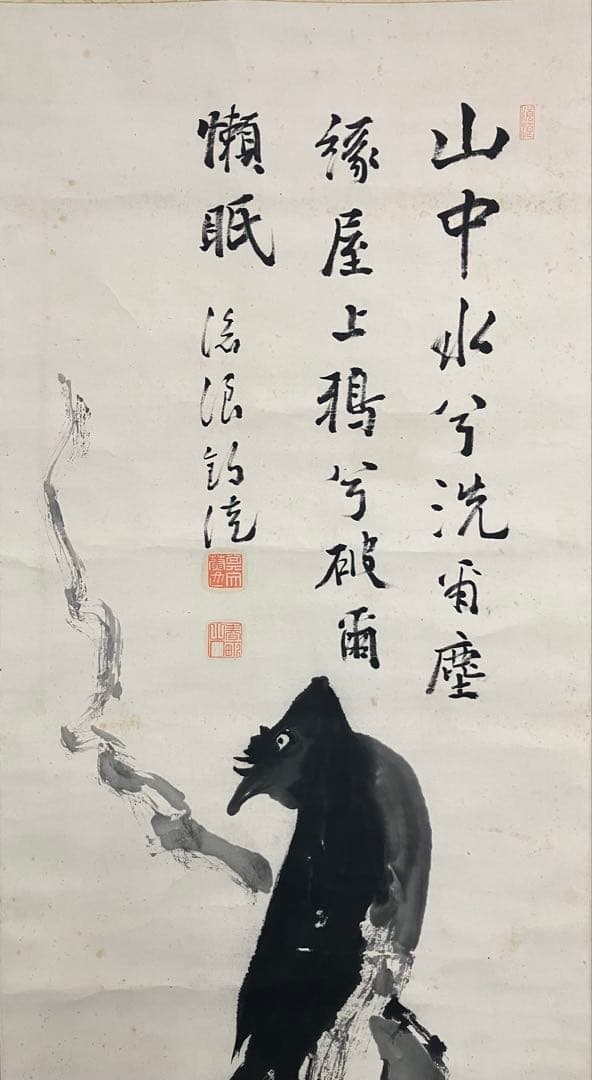 山中水兮洗塵
緣屋上鴉兮破爾
懶眠
滄浪釣徒